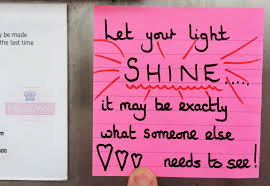 y be made
the last time
Let your light
SHINE.....
it may be exactly
what someone else
needs to see!